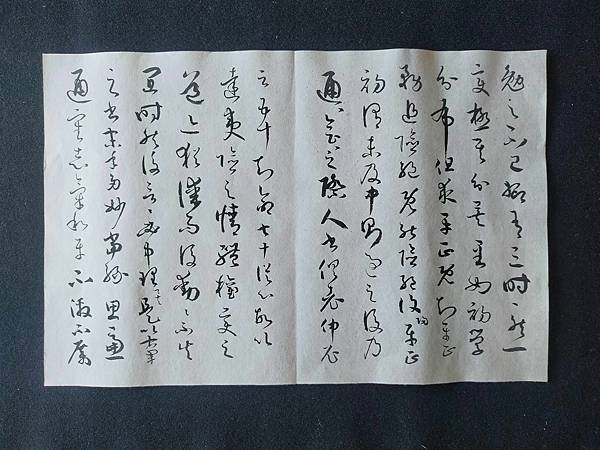 勉之不已抑有三時々然一
變極其分矣至如初學
分布但求平正既知平正
務追險絕既能險絕復歸平正
初謂未及中則過之後乃
通々會々之際人書俱老仲尼
云五十知命七十從心故以
達夷險之情體權變之
道亦猶謀而後動々不失
宜時然後言々必中理矣是以右軍
之書末年多妙當緣思慮
通審志氣和平不激不厲